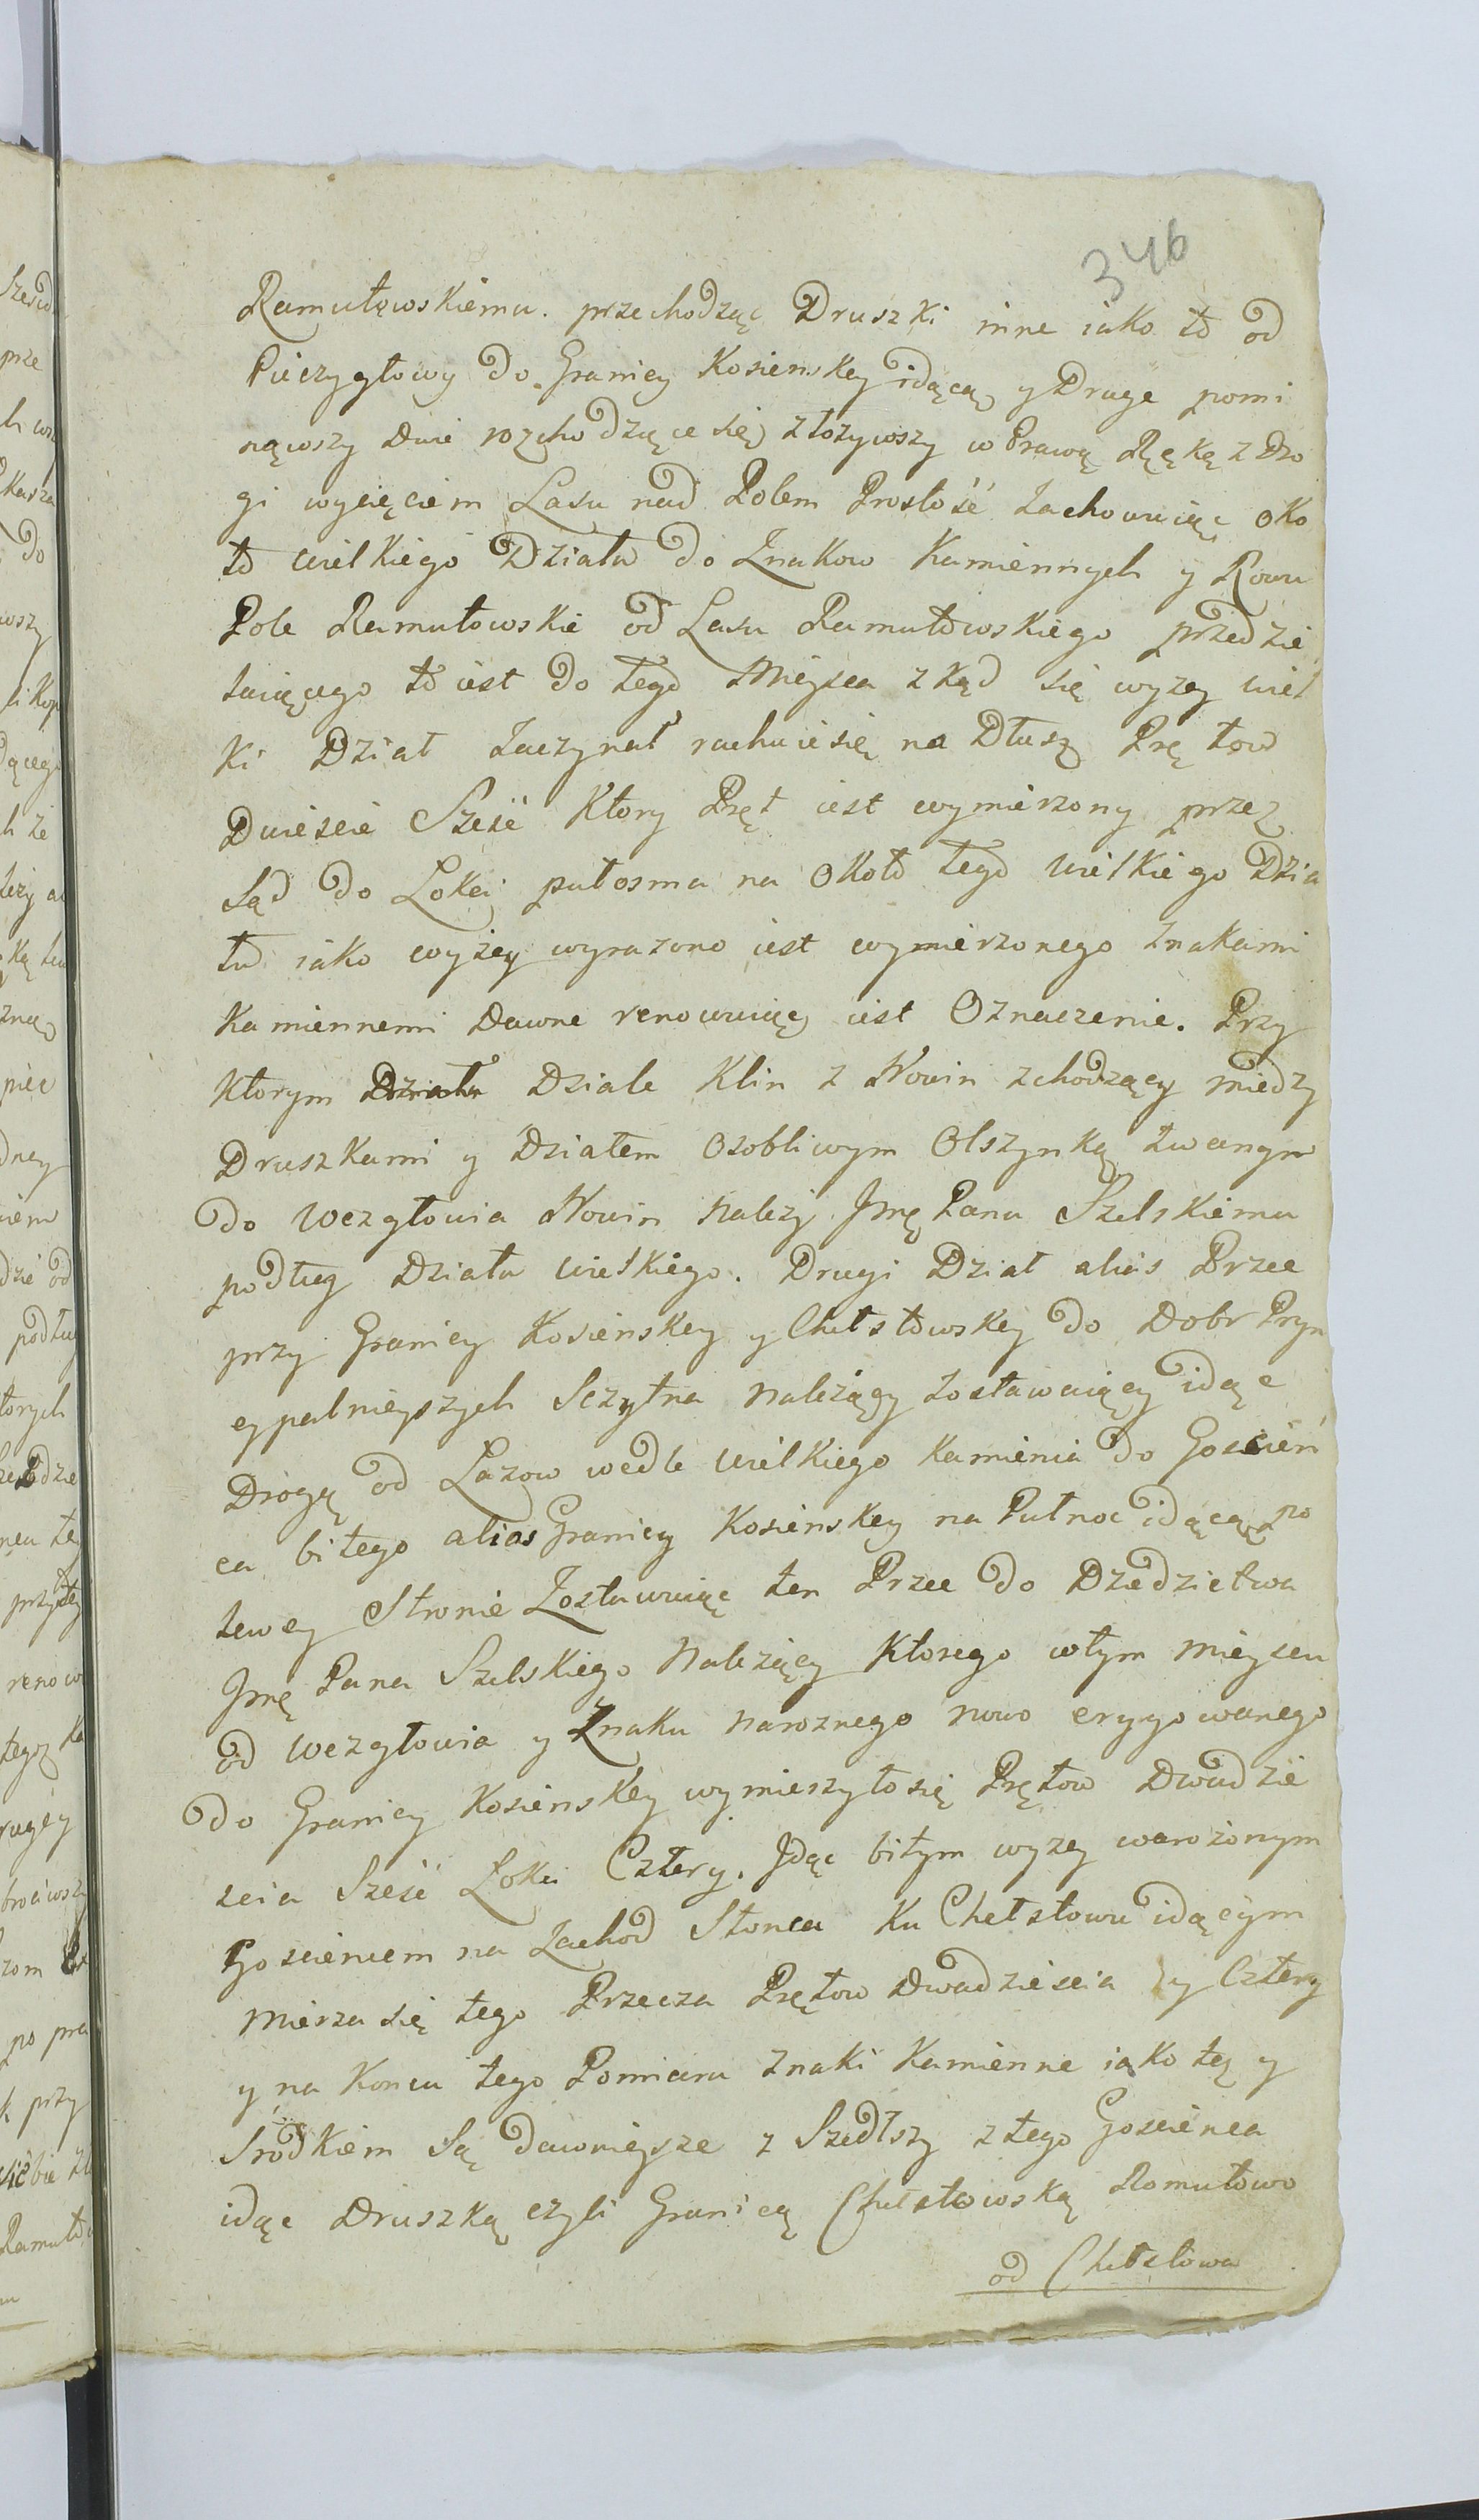 346
Ramułowskiemu. przechodząc Druszki inne iako to od
Pieczygłowy do Granicy Kosienskey idącą y Druge pomi
nąwszy dwie rozchodzące się złożywszy w Prawą Rękę z Dro
gi wycięciem Lasu nad Polem Prostość zachowuiąc oko
ło wielkiego Działu do Znakow Kamiennych y Rowu
Pole Ramułowskie od Lasu Ramułowskiego przedzie
laiącego to iest do tego Mieysca zkąd się wyzey wiel
ki Dział zaczynał rachuie się na Dłusz Prętow
Dwiescie Sześć Ktory Pręt iest wymierzony przez
Sąd do Lokci pułosma na około tego wielkiego Dzia
łu iako wyżey wyrazono iest wymierzonego znakami
Kamiennemi Dawne renowuiąc iest Oznaczenie. Przy
Ktorym Działu Dziale Klin z Nowin zchodzący między
Druszkami y Działem osobliwym Olszynką zwanym
do Wezgłowia Nowin należy Jmę Panu Szelskiemu
podług Działu wielkiego. Drugi Dział alias Przec
przy Granicy Kosienskey y Chełstowskey do Dobr Pryn
cypalnieyszych Sczytna należący zostawaiący idąc
Drogą od Lazow wedle wielkiego Kamienia do Goscień
ca bitego alias Granicy Kosienskey na Pułnoc idącą po
lewey Stronie Zostawuiąc ten Przec do Dziedzictwa
Jmę Pana Szelskiego Należący Ktorego wtym mieyscu
od Wezgłowia y Znaku naroznego nowo erygowanego
do Granicy Kosienskey wymierzyło się Prętow Dwadzie
scia Sześć Łokci Cztery. Jdąc bitym wyzey warożonym
Goscieńcem na Zachod Słonca Ku Chełstowu idącym
mierza się tego Przecza Prętow Dwadziescia y Cztery
y na Koncu tego Pomiaru Znaki Kamienne iako tę y
Srodkiem Są dawnieysze z Szedłszy z tego Goscienca
idąc Druszką czyli Granicą Chełstowską Romułowo
od Chełstowa